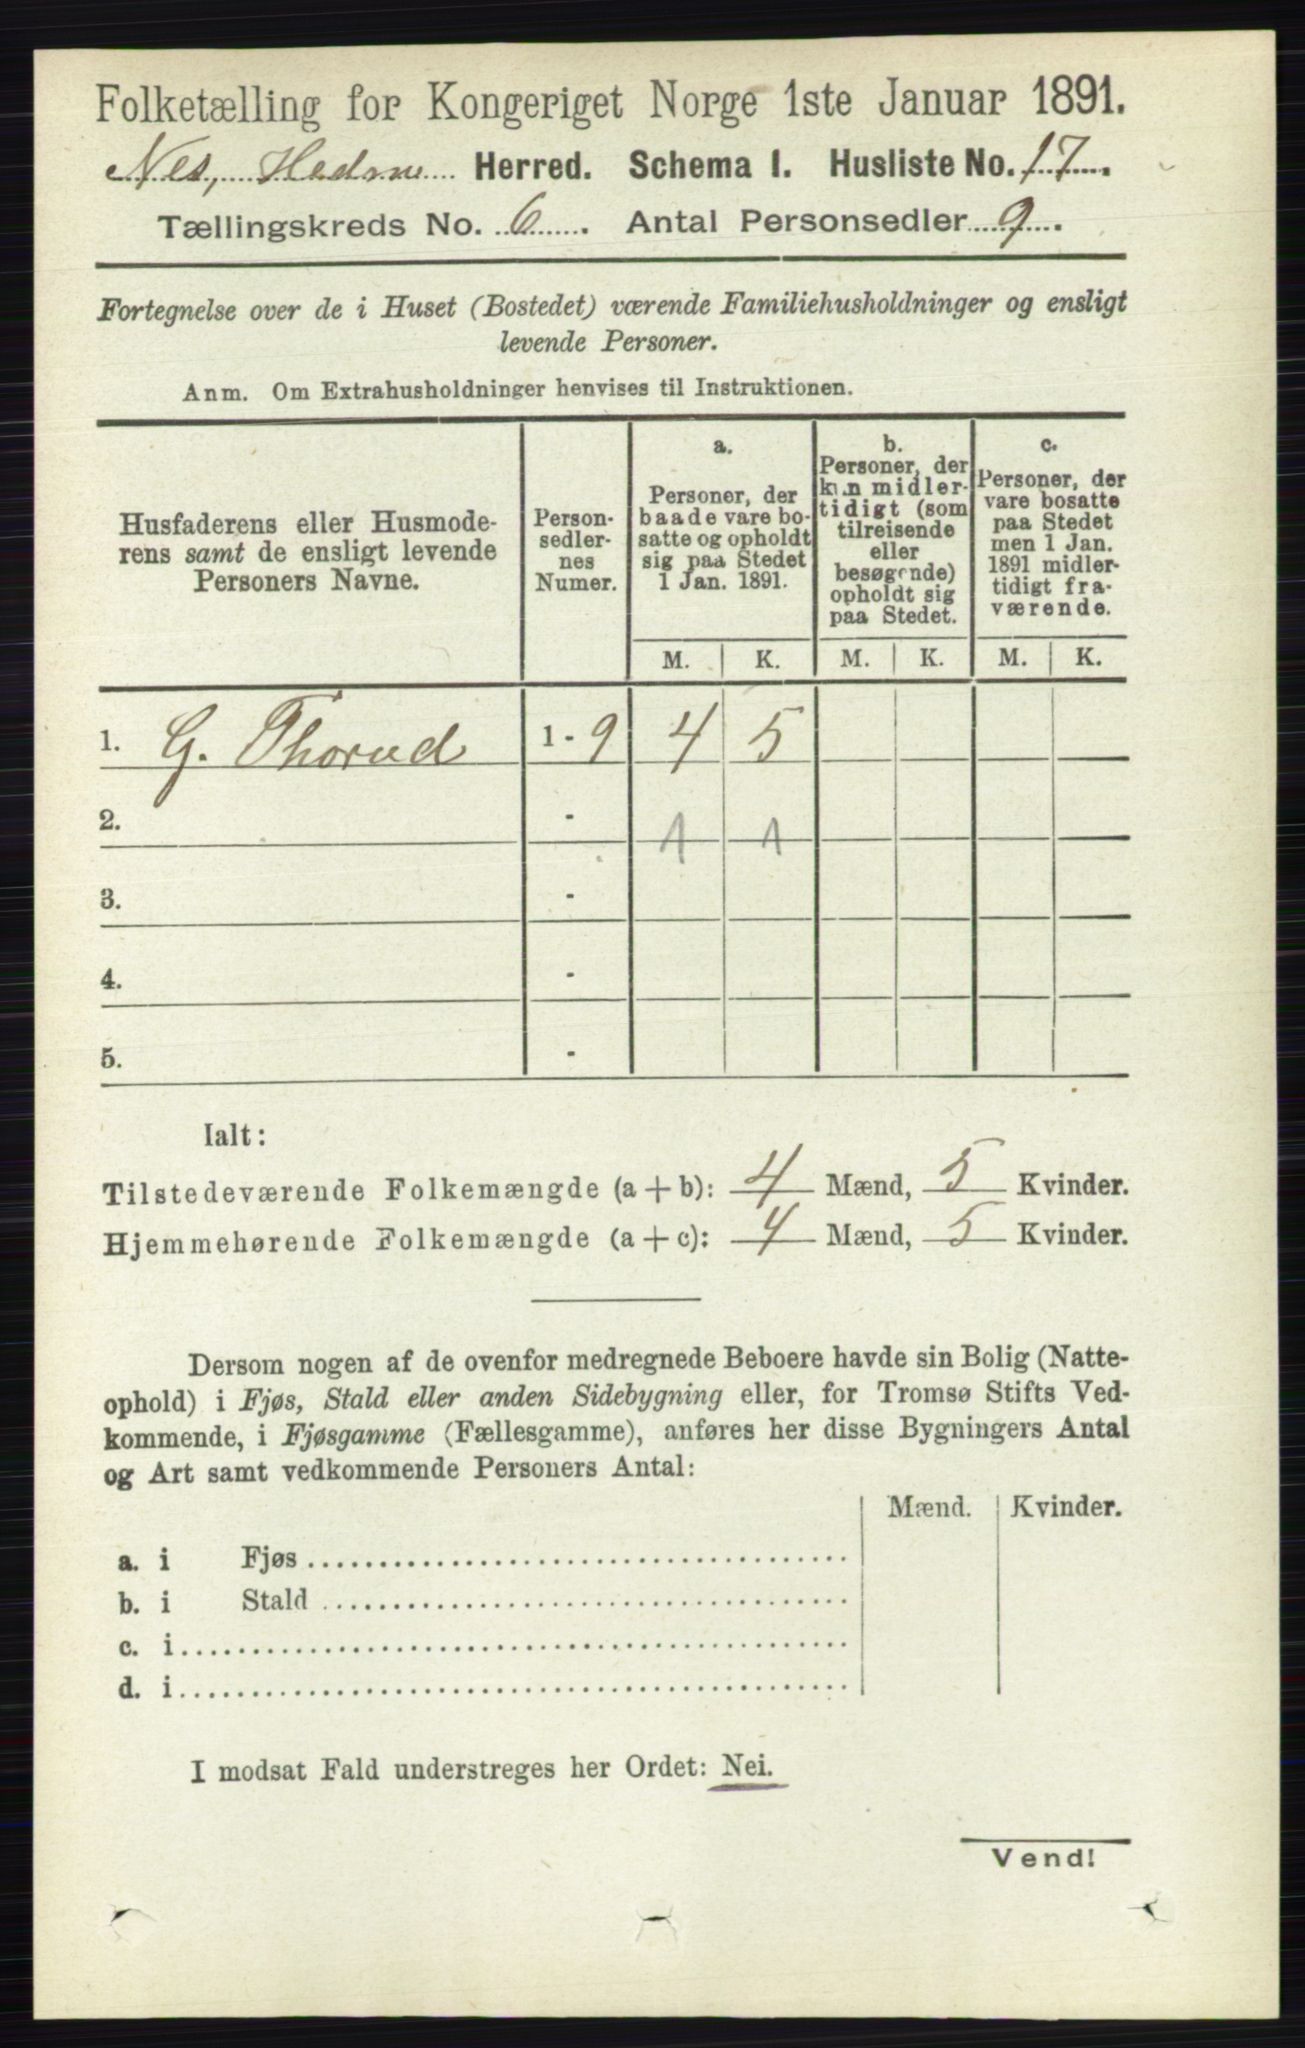 Folketælling for Kongeriget Norge 1ste Januar 1891.
Nes, Hedm Herred. Schema I. Husliste No. 17.
Tællingskreds No. 6. Antal Personsedler 9.
Fortegnelse over de i Huset (Bostedet) værende Familiehusholdninger og ensligt
levende Personer.
Anm. Om Extrahusholdninger henvises til Instruktionen.
Husfaderens eller Husmode-
rens samt de ensligt levende
Personers Navne.
Person-
sedler-
nes
Numer.
a.
Personer, der
baade vare bo-
satte og opholdt
sig paa Stedet
1 Jan. 1891.
b.
Personer, der
kun midler-
tidigt (som
tilreisende
eller
besøgende)
opholdt sig
paa Stedet.
c.
Personer, der
vare bosatte
paa Stedet
men 1 Jan.
1891 midler-
tidigt fra-
værende.
M. K. M. K. M. K.
1. G. Thorud 1 - 9 4 5
2. - 1 1
3. -
4. -
5. -
Ialt:
Tilstedeværende Folkemængde (a + b): 4 Mænd, 5 Kvinder.
Hjemmehørende Folkemængde (a + c): 4 Mænd, 5 Kvinder.
Dersom nogen af de ovenfor medregnede Beboere havde sin Bolig (Natte-
ophold) i Fjøs, Stald eller anden Sidebygning eller, for Tromsø Stifts Ved-
kommende, i Fjøsgamme (Fællesgamme), anføres her disse Bygningers Antal
og Art samt vedkommende Personers Antal:
Mænd. Kvinder.
a. i Fjøs
b. i Stald
c. i
d. i
I modsat Fald understreges her Ordet: Nei.
Vend!